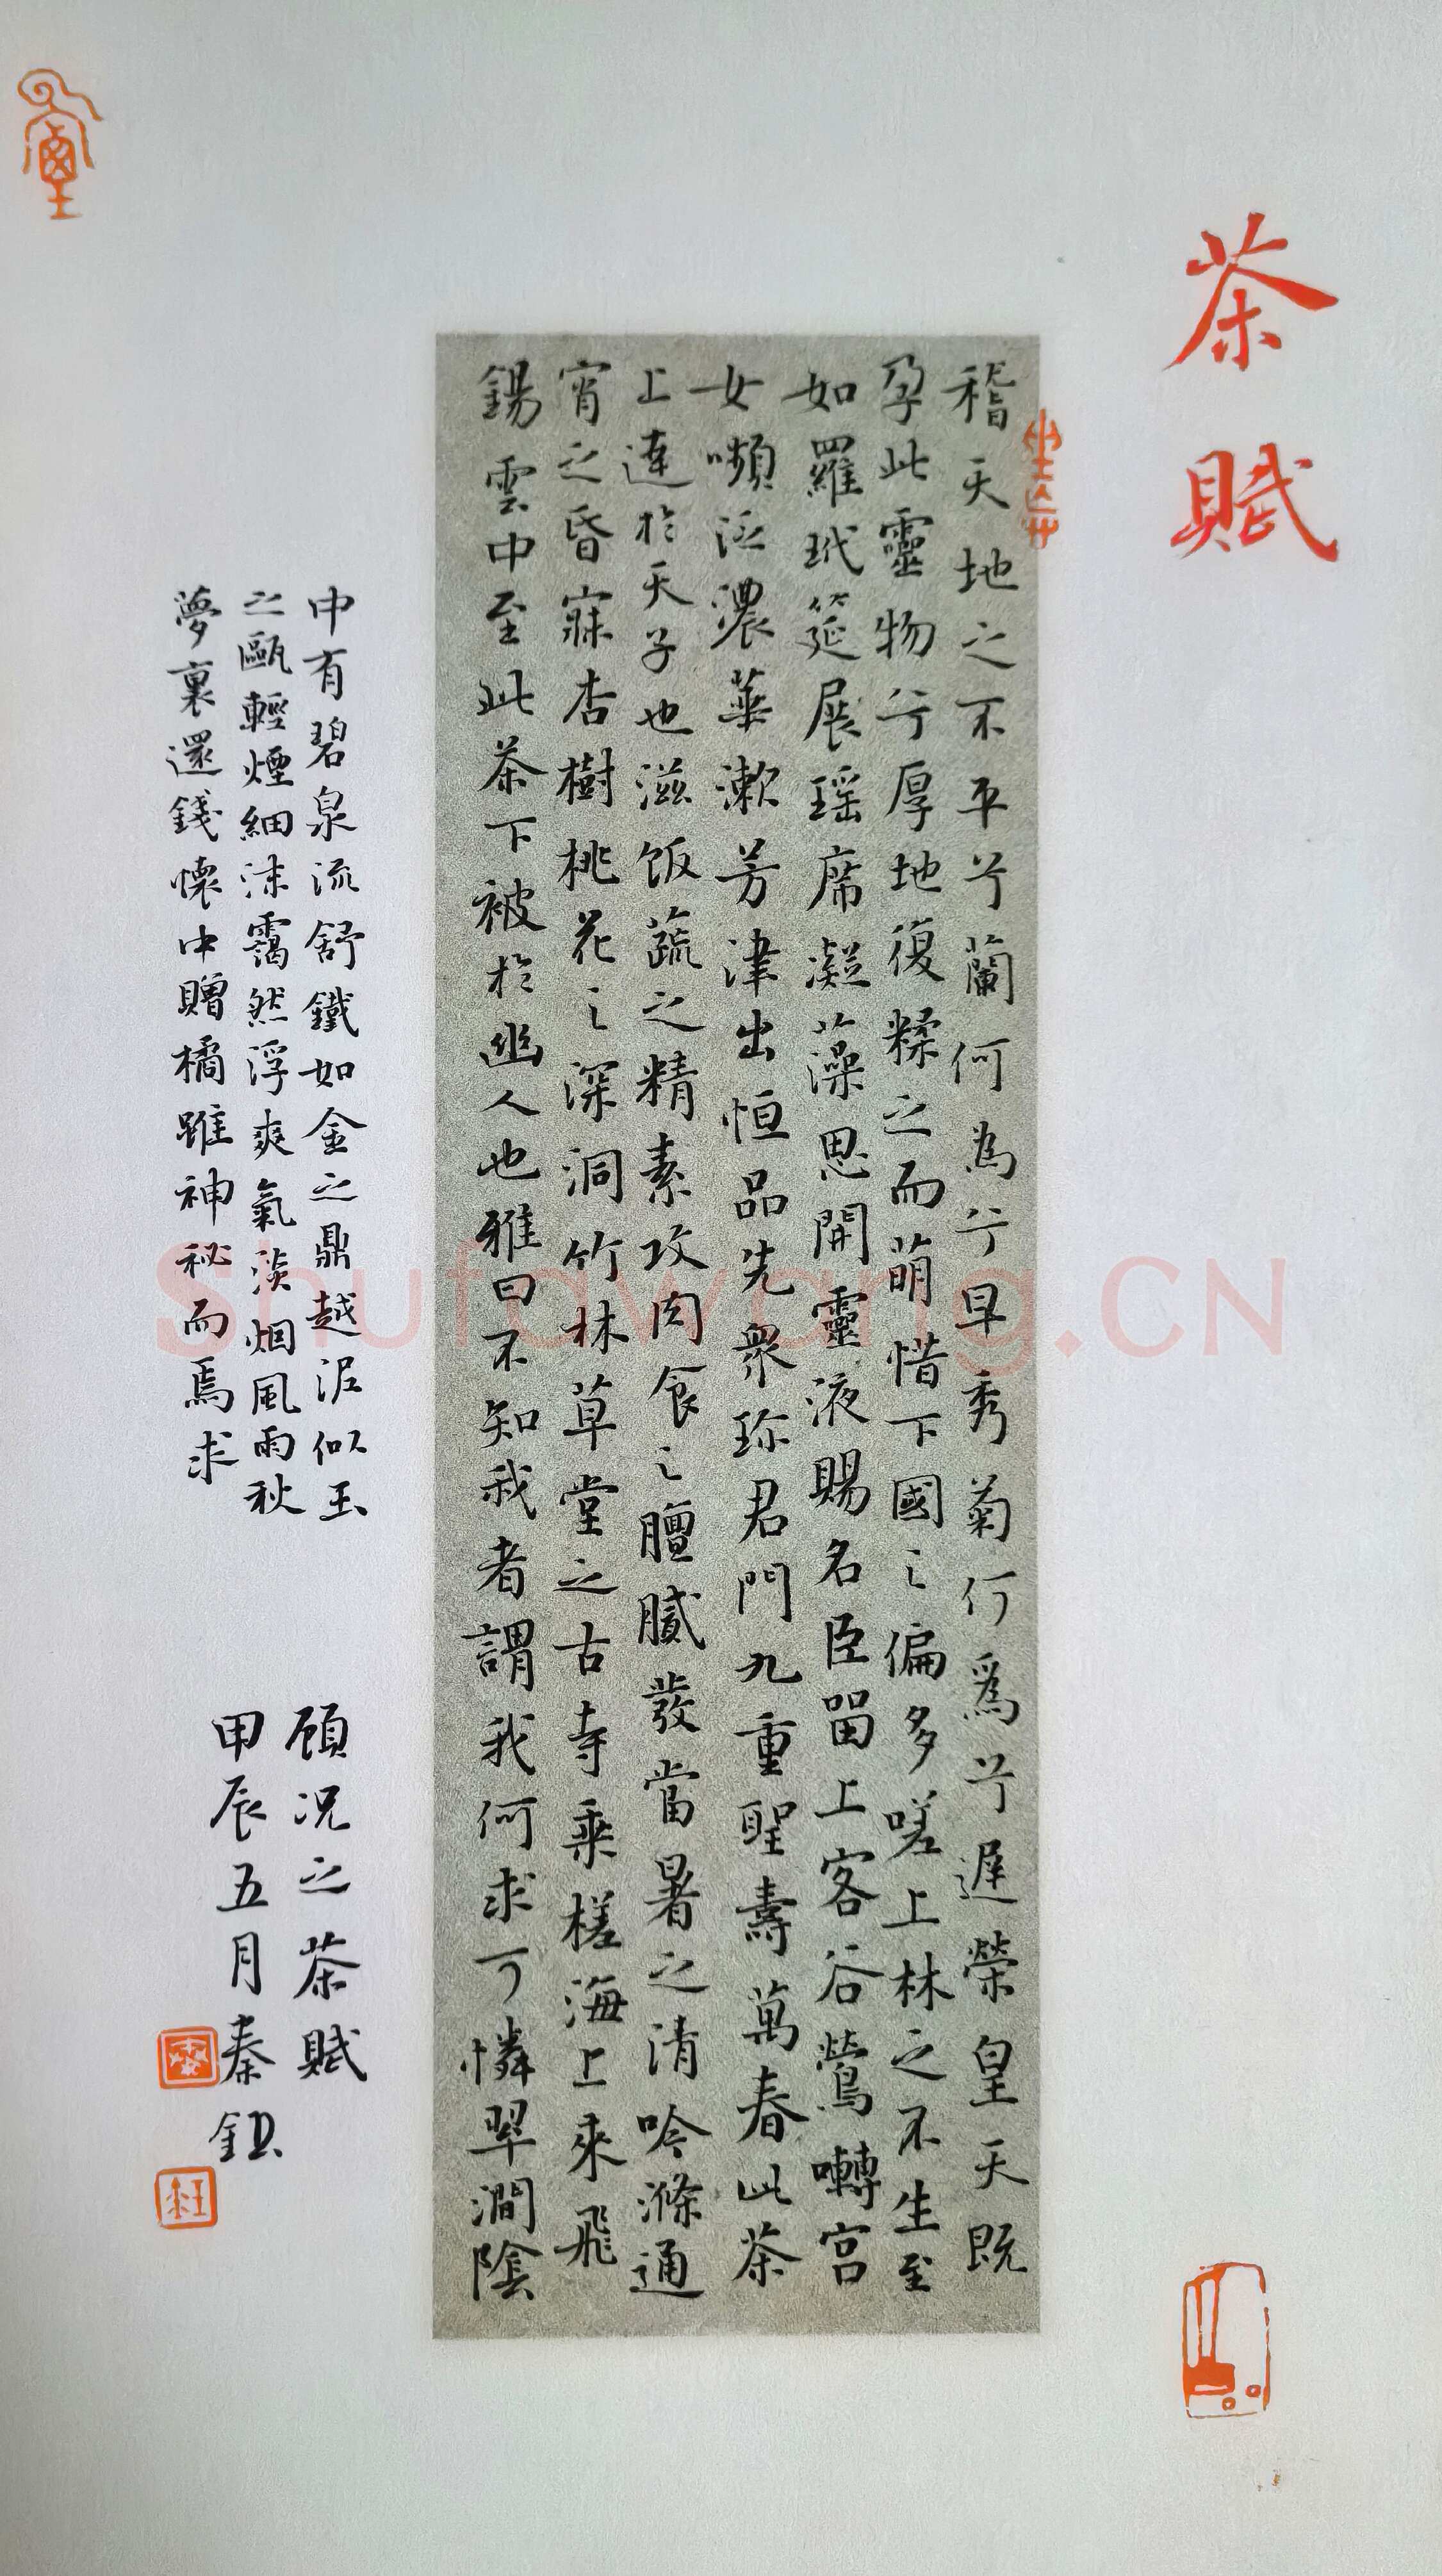 茶賦
稽天地之不平兮蘭何為兮早秀菊何爲兮遲榮皇天既
孕此靈物兮厚地復糅之而萌惜下國之偏多嗟上林之不生至
如羅玳筵展瑤席凝藻思開靈液賜名臣留上客谷鶯囀宮
女嚬泛濃華漱芳津出恒品先衆珍君門九重聖壽萬春此茶
上達於天子也滋飯蔬之精素攻肉食之膻膩發當暑之清吟滌通
宵之昏寐杏樹桃花之深洞竹林草堂之古寺乘槎海上來飛
錫雲中至此茶下被於幽人也雅曰不知我者謂我何求可憐翠澗陰
中有碧泉流舒鐵如金之鼎越泥似玉
之甌輕煙細沫靄然浮爽氣淡烟風雨秋
夢裏還錢懷中贈橘雖神秘而焉求
顧况之茶賦
甲辰五月秦鈕
Shufawang.CN